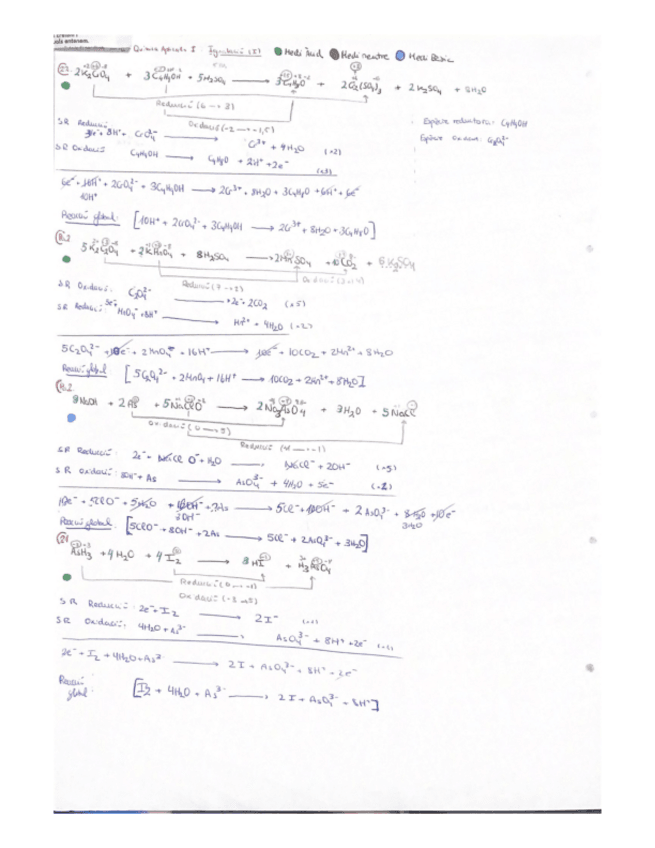 Química Aplicada I Medi Àcid Medi neutre Medi Bàsic
2K₂CrO₄ + 3C₄H₉OH + 5H₂SO₄ → 3C₄H₈O + Cr₂(SO₄)₃ + 2K₂SO₄ + 8H₂O
Reducció (6 → 3)
Oxidació (-2 → -1,5)
Espècie reductora: C₄H₉OH
Espècie oxidant: CrO₄²⁻
SR Reducció
3e⁻ + 8H⁺ + CrO₄²⁻ → Cr³⁺ + 4H₂O (×2)
SR Oxidació C₄H₉OH → C₄H₈O + 2H⁺ + 2e⁻ (×3)
6e⁻ + 16H⁺ + 2CrO₄²⁻ + 3C₄H₉OH → 2Cr³⁺ + 8H₂O + 3C₄H₈O + 6H⁺ + 6e⁻
10H⁺
Reacció global: [10H⁺ + 2CrO₄²⁻ + 3C₄H₉OH → 2Cr³⁺ + 8H₂O + 3C₄H₈O]
5K₂C₂O₄ + 2KMnO₄ + 8H₂SO₄ → 2MnSO₄ + 10CO₂ + 6K₂SO₄
SR Oxidació: C₂O₄²⁻ → 2e⁻ + 2CO₂ (×5)
SR Reducció: 5e⁻ + MnO₄⁻ + 8H⁺ → Mn²⁺ + 4H₂O (×2)
5C₂O₄²⁻ + 10e⁻ + 2MnO₄⁻ + 16H⁺ → 10e⁻ + 10CO₂ + 2Mn²⁺ + 8H₂O
Reacció global [5C₂O₄²⁻ + 2MnO₄ + 16H⁺ → 10CO₂ + 2Mn²⁺ + 8H₂O]
8NaOH + 2As + 5NaClO → 2Na₃AsO₄ + 3H₂O + 5NaCl
Oxidació (0 → 5)
Reducció (+1 → -1)
SR Reducció: 2e⁻ + ClO⁻ + H₂O → Cl⁻ + 2OH⁻ (×5)
SR Oxidació: 8OH⁻ + As → AsO₄³⁻ + 4H₂O + 5e⁻ (×2)
10e⁻ + 5ClO⁻ + 5H₂O + 16OH⁻ + 2As → 5Cl⁻ + 10OH⁻ + 2AsO₄³⁻ + 8H₂O + 10e⁻
3H₂O
Reacció global: [5ClO⁻ + 8OH⁻ + 2As → 5Cl⁻ + 2AsO₄³⁻ + 3H₂O]
AsH₃ + 4H₂O + 4I₂ → 8HI + H₃AsO₄
Reducció (0 → -1)
Oxidació (-3 → 5)
SR Reducció: 2e⁻ + I₂ → 2I⁻
SR Oxidació: 4H₂O + As³⁻ → AsO₄³⁻ + 8H⁺ + 2e⁻
2e⁻ + I₂ + 4H₂O + As³⁻ → 2I + AsO₄³⁻ + 8H⁺ + 2e⁻
Reacció
global: [I₂ + 4H₂O + As³⁻ → 2I + AsO₄³⁻ + 8H⁺]